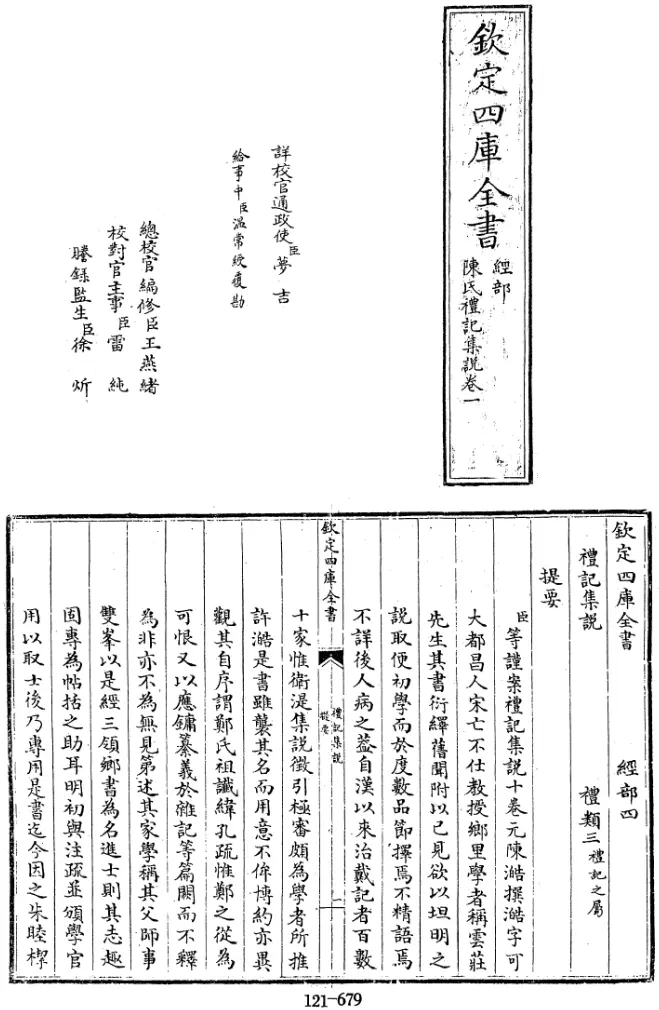 欽定四庫全書
經部
陳氏禮記集說卷一
詳校官通政使臣夢吉
給事中臣溫常綬覆勘
總校官編修臣王燕緒
校對官主事臣雷純
謄錄監生臣徐炘
欽定四庫全書 經部四
禮記集說 禮類三禮記之屬
提要
臣等謹案禮記集說十卷元陳澔撰澔字可
大都昌人宋亡不仕教授鄉里學者稱雲莊
先生其書衍繹舊聞附以己見欲以坦明之
說取便初學而於度數品節擇焉不精語焉
不詳後人病之葢自漢以來治戴記者百數
欽定四庫全書
禮記集說
提要
二
十家惟衛湜集說徵引極審頗為學者所推
許澔是書雖襲其名而用意不侔博約亦異
觀其自序謂鄭氏祖讖緯孔疏惟鄭之從為
可恨又以應鏞纂義於雜記等篇闕而不釋
為非亦不為無見第述其家學稱其父師事
雙峯以是經三領鄉書為名進士則其志趣
固專為帖括之助耳明初與注疏並頒學官
用以取士後乃專用是書迄今因之朱睦㮮
121-679